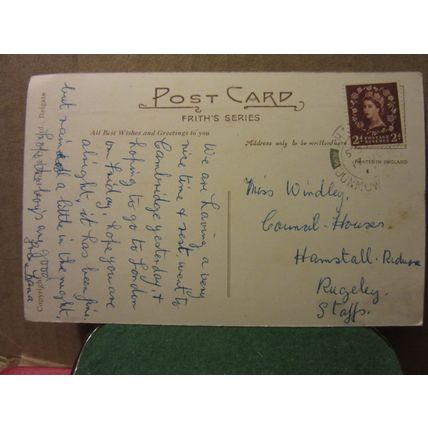 POST CARD
FRITH'S SERIES
All Best Wishes and Greetings to you
Address only to be written here
PRINTED IN ENGLAND
2d POSTAGE REVENUE 2d
DUNMOW
We are having a very
nice time & rest. went to
Cambridge yesterday, &
hoping to go to London
on Friday, hope you are
alright, it has been fine,
but rained a little in the night,
hope the boys are good
Miss Windley,
Council Houses,
Hamstall-Ridware
Rugeley.
Staffs.
Copyright
Reigate